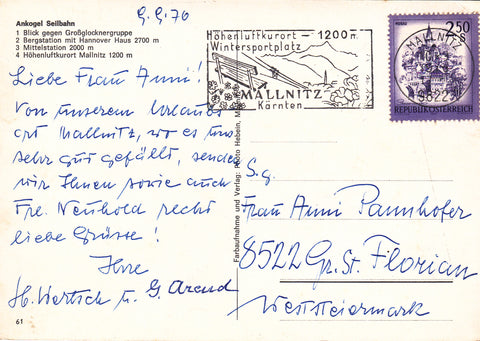 Ankogel Seilbahn
1 Blick gegen Großglocknergruppe
2 Bergstation mit Hannover Haus 2700 m
3 Mittelstation 2000 m
4 Höhenluftkurort Mallnitz 1200 m
9.9.76
Höhenluftkurort – 1200 m
Wintersportplatz
MALLNITZ
Kärnten
MALLNITZ
9822
2.50
REPUBLIK ÖSTERREICH
Liebe Frau Anni!
Von unserem Urlaubs
ort Mallnitz, wo es uns
sehr gut gefällt, senden
wir Ihnen sowie auch
Frl. Neuhold recht
liebe Grüsse!
Ihre
u. G. Arend
Farbaufnahme und Verlag:
S.g.
Frau Anni Pannhofer
8522 Gr. St. Florian
Weststeiermark
61